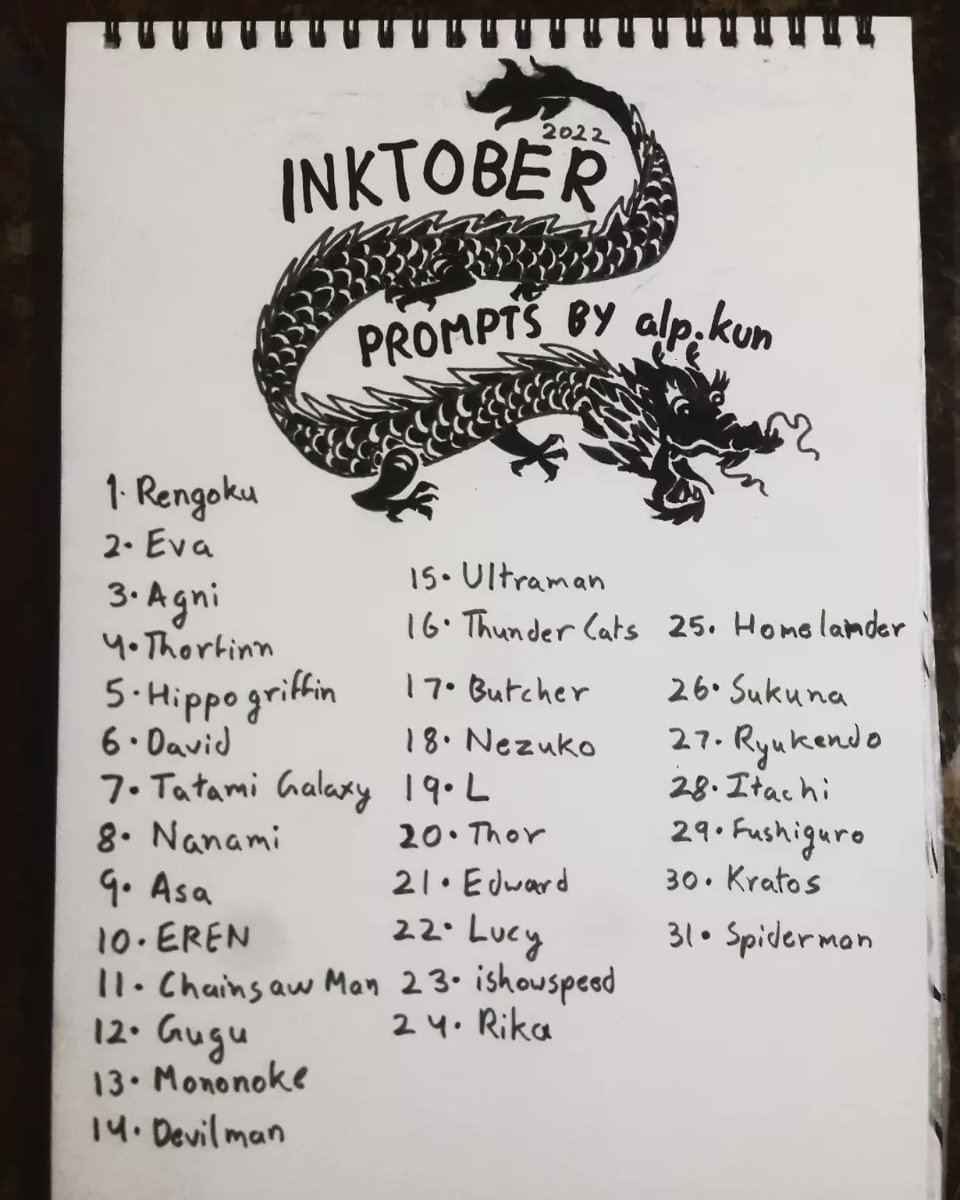 2022
INKTOBER
PROMPTS BY alp.kun
1. Rengoku
2. Eva
3. Agni
4. Thorfinn
5. Hippogriffin
6. David
7. Tatami Galaxy
8. Nanami
9. Asa
10. EREN
11. Chainsaw Man
12. Gugu
13. Mononoke
14. Devilman
15. Ultraman
16. Thunder Cats
17. Butcher
18. Nezuko
19. L
20. Thor
21. Edward
22. Lucy
23. ishowspeed
24. Rika
25. Homelander
26. Sukuna
27. Ryukendo
28. Itachi
29. Fushiguro
30. Kratos
31. Spiderman